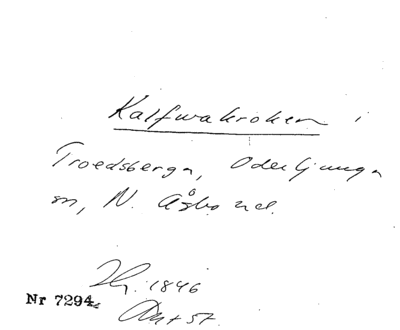 Kalfwakroken i
Troedsberga, Oderljunga
sn, N. Åsbo hd.
Hg. 1846
Nr 7294